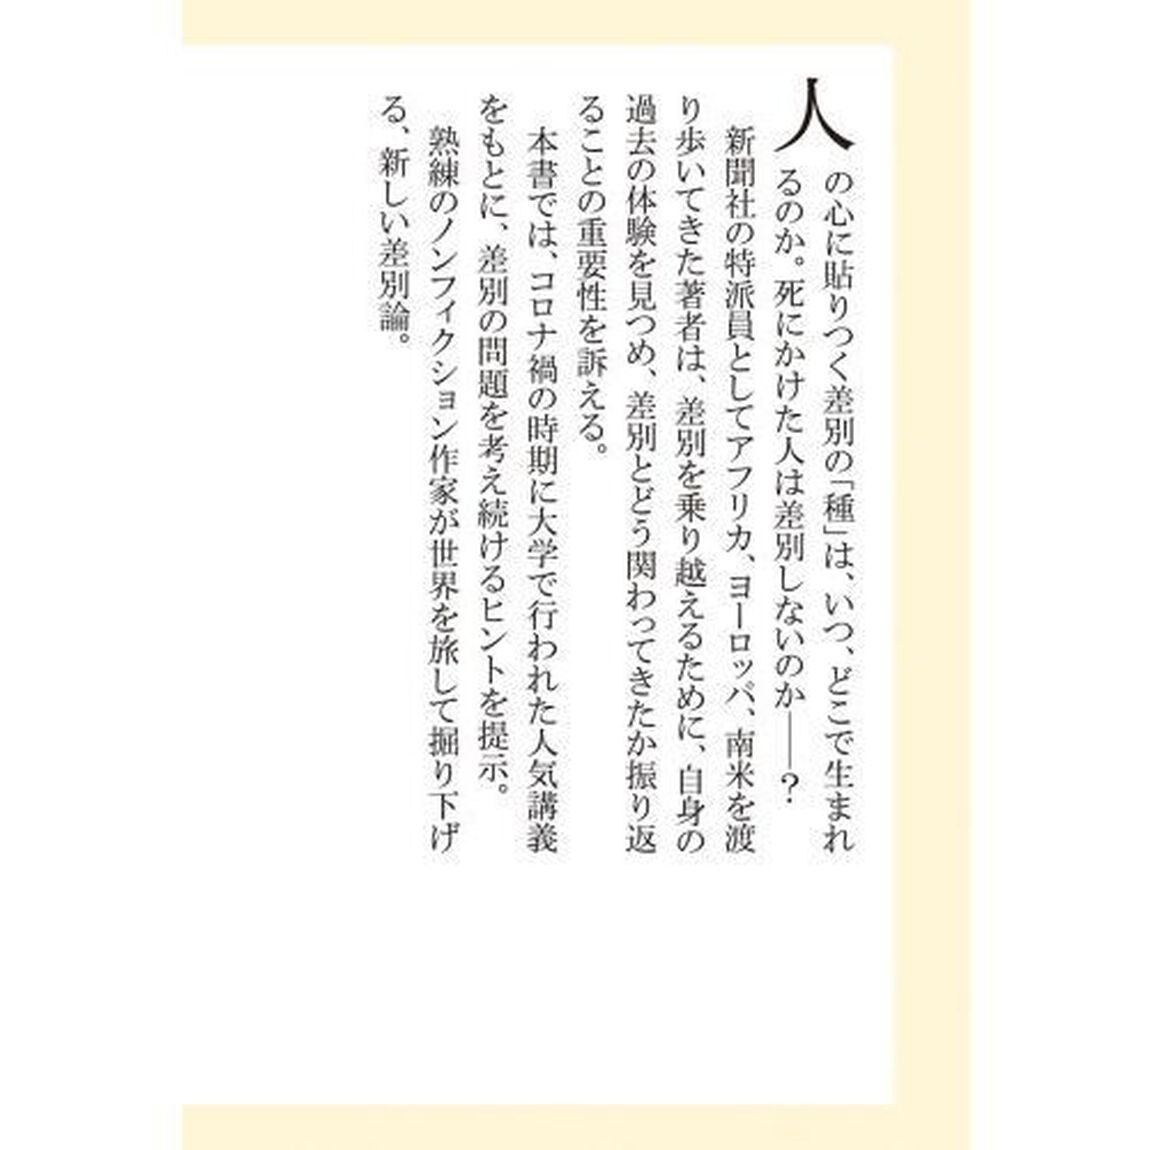 人の心に貼りつく差別の「種」は、いつ、どこで生まれ
るのか。死にかけた人は差別しないのか――?
新聞社の特派員としてアフリカ、ヨーロッパ、南米を渡
り歩いてきた著者は、差別を乗り越えるために、自身の
過去の体験を見つめ、差別とどう関わってきたか振り返
ることの重要性を訴える。
本書では、コロナ禍の時期に大学で行われた人気講義
をもとに、差別の問題を考え続けるヒントを提示。
熟練のノンフィクション作家が世界を旅して掘り下げ
る、新しい差別論。